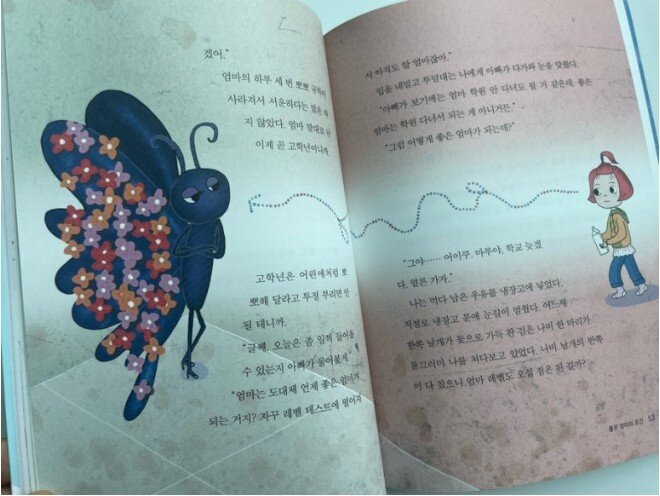 겠어."
엄마의 하루 세 번 뽀뽀 규칙이
사라져서 서운하다는 말은 하
지 않았다. 엄마 말대로 난
이제 곧 고학년이니까.
고학년은 어린애처럼 뽀
뽀해 달라고 투정 부리면 안
될 테니까.
"글쎄, 오늘은 좀 일찍 들어올
수 있는지 아빠가 물어볼게."
"엄마는 도대체 언제 좋은 엄마가
되는 거지? 자꾸 레벨 테스트에 떨어져
서 아직도 알 엄마잖아."
입을 내밀고 투덜대는 나에게 아빠가 다가와 눈을 맞췄다.
"아빠가 보기에는 엄마 학원 안 다녀도 될 거 같은데. 좋은
엄마는 학원 다녀서 되는 게 아니거든."
"그럼 어떻게 좋은 엄마가 되는데?"
"그야…… 어이쿠, 마루야, 학교 늦겠
다. 얼른 가자."
나는 먹다 남은 우유를 냉장고에 넣었다.
저절로 냉장고 문에 눈길이 멈췄다. 어느새
한쪽 날개가 꽃으로 가득 찬 검은 나비 한 마리가
물끄러미 나를 쳐다보고 있었다. 나비 날개의 반쪽
이 다 찼으니 엄마 레벨도 오십 점은 된 걸까?
좋은 엄마의 조건 53